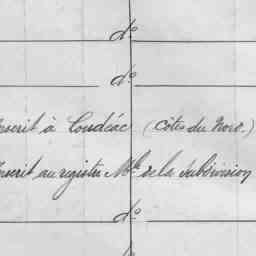 do
do
Inscrit à Loudéac (Côtes du Nord.)
Inscrit au registre Mle de la subdivision
do